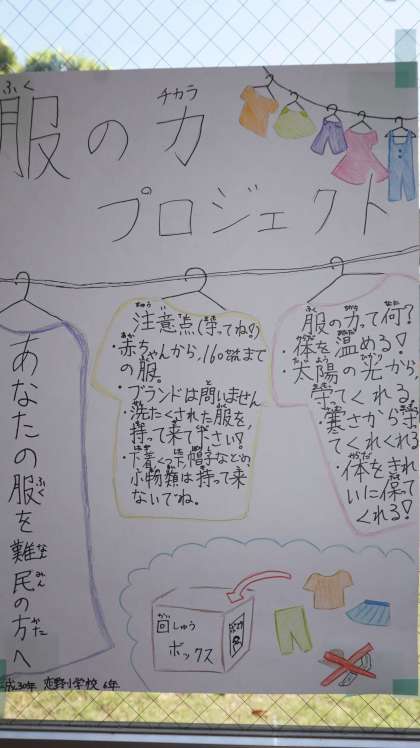 ふく チカラ
服の力
プロジェクト
あなたの服を難民の方へ
注意点(守ってね!)
・赤ちゃんから、160cmまで
の服。
・ブランドは問いません
・洗たくされた服を、
持って来て下さい!
・下着くつ下帽子などの、
小物類は持って来
ないでね。
服の力って何?
・体を温める!
・太陽の光から、
守てくれる
・寒さから守っ
てくれくれる
・体をきれ
いに保って
くれる!
回しゅう
ボックス
成30年 小学校 6年